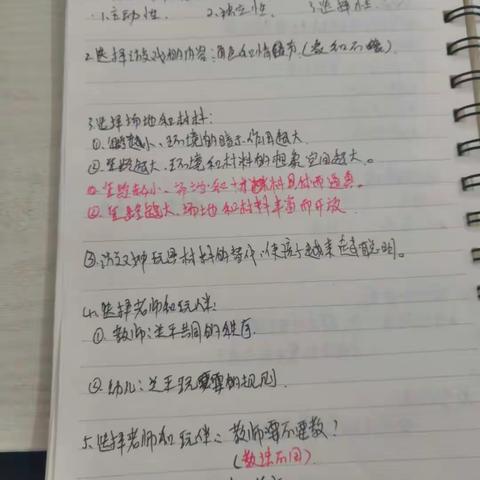 1.主动性. 2.独立性. 3.选择性.
2.选择游戏的内容:角色和情节.(教和不教)
3.选择场地和材料:
①.年龄越小、环境的暗示作用越大.
②.年龄越大.环境和材料的想象空间越大。
①.年龄越小、场地和材料具体而逼真.
②.年龄越大.场地和材料丰富而开放.
③.游戏中玩具材料的替代,使孩子越来越聪明。
4.选择老师和玩伴:
①.教师:关乎共同的秩序.
②.幼儿:关乎玩的规则.
5.选择老师和玩伴:教师要不要教?
(教法不同)